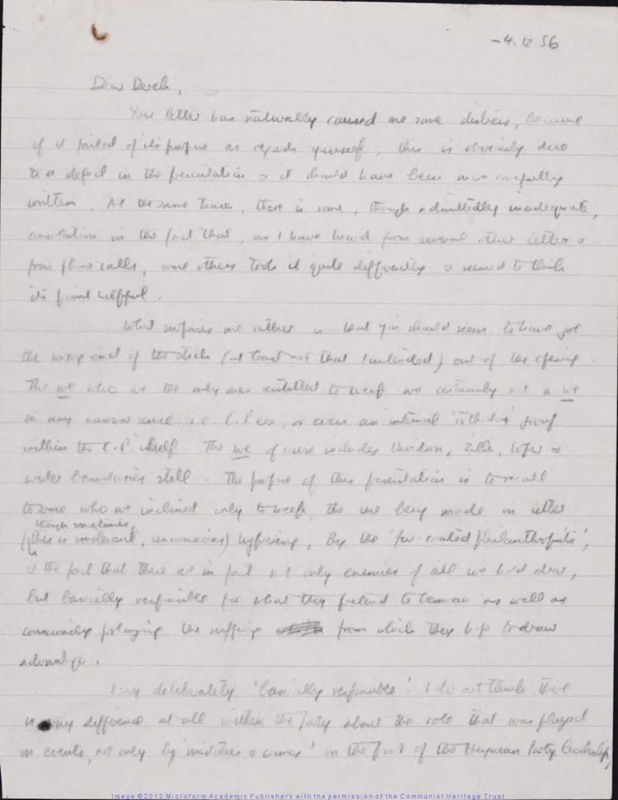 -4.12.56
Dear Derek,
Your letter has naturally caused me some distress, because
if it failed of its purpose as regards yourself, this is obviously due
to a defect in the formulation & it should have been more carefully
written. At the same time, there is some, though admittedly inadequate,
consolation in the fact that, as I have heard from several other letters &
from phone calls, some others took it quite differently & seemed to think
its point helpful.
What surprises me rather is that you should seem to have got
the wrong end of the stick (at least not that I intended) out of the opening.
The we who are the only ones entitled to weep are certainly not a we
in any narrow sense, i.e. C.P.ers, or even an internal group
within the C.P. itself. The we of course includes &
wider boundaries still. The purpose of this formulation is to recall
to some who are inclined only to weep, the use being made in utter
though sometimes
(this is irrelevant, unconscious) hypocrisy, by the philanthropists',
of the fact that there are in fact not only enemies of all we hold dear,
but basically responsible for what they pretend to bemoan as well as
consciously prolonging the suffering from which they hope to draw
advantage.
I say deliberately 'basically responsible'. I do not think there
is any difference at all within the Party about the role that was played
in events, not only by mistakes & crimes' on the part of the Hungarian Party leadership,
Image ©2012 Microform Academic Publishers with the permission of the Communist Heritage Trust